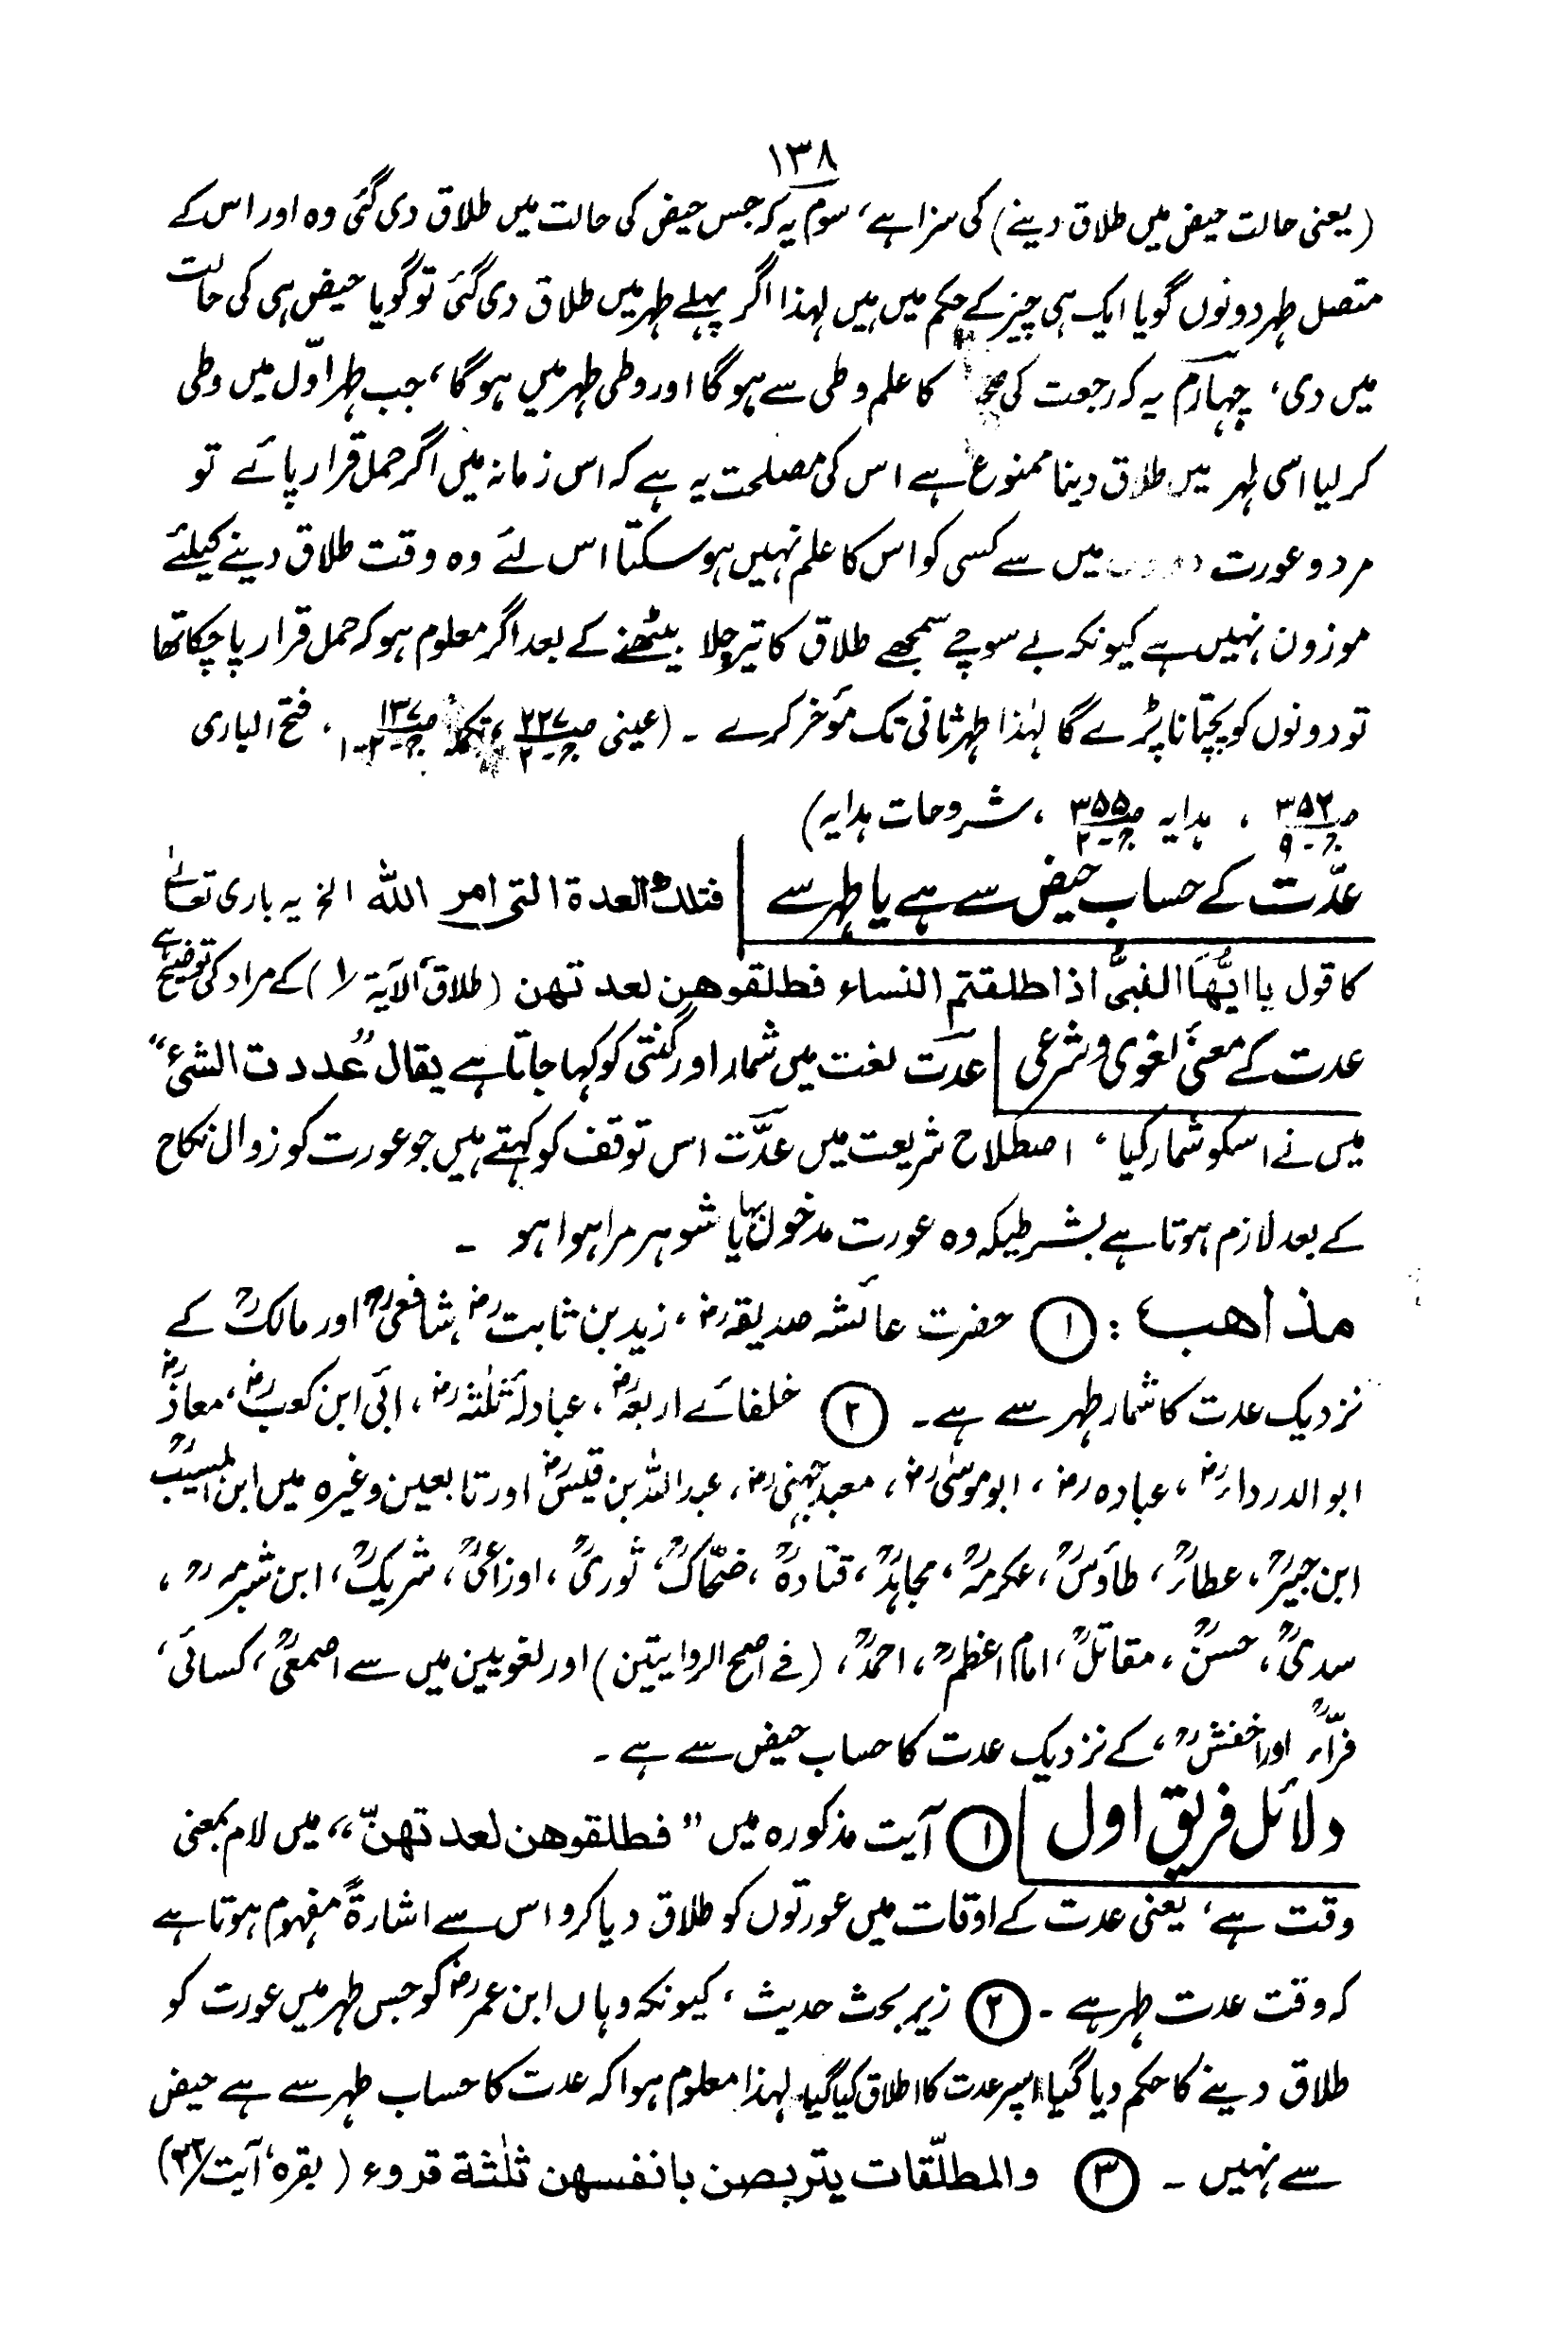 ۱۳۸
(یعنی حالت حیض میں طلاق دینے) کی سزا ہے، سوم یہ کہ جس حیض کی حالت میں طلاق دی گئی وہ اور اس کے
متصل طہر دونوں گویا ایک ہی چیز کے حکم میں ہیں لہذا اگر پہلے طہر میں طلاق دی گئی تو گویا حیض ہی کی حالت
میں دی، چہارم یہ کہ رجعت کی کا علم وطی سے ہوگا اور وطی طہر میں ہوگا، جب طہر اوّل میں وطی
کر لیا اسی طہر میں طلاق دینا ممنوع ہے اس کی مصلحت یہ ہے کہ اس زمانہ میں اگر حمل قرار پائے تو
مرد و عورت میں سے کسی کو اس کا علم نہیں ہو سکتا اس لئے وہ وقت طلاق دینے کیلئے
موزون نہیں ہے کیونکہ بے سوچے سمجھے طلاق کا تیر چلا بیٹھنے کے بعد اگر معلوم ہو کہ حمل قرار پا چکا تھا
تو دونوں کو پچتانا پڑے گا لہٰذا طہر ثانی تک مؤخر کرے ۔ (عینی صـ۲۲۷ جـ۲۰، تکملہ صـ۱۳۷ جـ۲ـ۱، فتح الباری
صـ۳۵۲ جـ۹، ہدایہ صـ۳۵۵ جـ۲، شروحات ہدایہ)
عدّت کے حساب حیض سے ہے یا طہر سے | فتلك العدة التی امر اللہ الخ یہ باری تعالےٰ
کا قول یا ایُّھَا النبیُّ اذا طلقتم النساء فطلقوھن لعدتھن (طلاق الآیۃ ۱/) کے مراد کی توضیح ہے
عدت کے معنیٔ لغوی و شرعی | عدّت لغت میں شمار اور گنتی کو کہا جاتا ہے یقال "عددت الشیٔ"
میں نے اسکو شمار کیا، اصطلاح شریعت میں عدّت اس توقف کو کہتے ہیں جو عورت کو زوال نکاح
کے بعد لازم ہوتا ہے بشرطیکہ وہ عورت مدخول بہا یا شوہر مرا ہوا ہو ۔
مذاھب : ① حضرت عائشہ صدیقہ رض، زید بن ثابت رض، شافعیؒ اور مالکؒ کے
نزدیک عدت کا شمار طہر سے ہے۔ ② خلفائے اربعہ رض، عبادلۂ ثلٰثہ رض، ابّی ابن کعب رض، معاذ رض
ابو الدرداء رض، عبادہ رض، ابو موسیٰ رض، معبد جہنی رض، عبد اللہ بن قیس رض اور تابعین وغیرہ میں ابن المسیّبؒ
ابن جبیرؒ، عطاءؒ، طاؤسؒ، عکرمہؒ، مجاہدؒ، قتادہؒ، ضحّاکؒ، ثوریؒ، اوزاعیؒ، شریکؒ، ابن شبرمہ رح،
سدیؒ، حسنؒ، مقاتلؒ، امام اعظمؒ، احمدؒ، (فے اصح الروایتین) اور لغویین میں سے اصمعیؒ، کسائی،
فرّاءؒ اور اخفش رح، کے نزدیک عدت کا حساب حیض سے ہے ۔
دلائل فریق اول | ① آیت مذکورہ میں "فطلقوھن لعدتھنّ" میں لام بمعنی
وقت ہے، یعنی عدت کے اوقات میں عورتوں کو طلاق دیا کرو اس سے اشارۃً مفہوم ہوتا ہے
کہ وقت عدت طہر ہے ۔ ② زیر بحث حدیث، کیونکہ وہاں ابن عمر رض کو جس طہر میں عورت کو
طلاق دینے کا حکم دیا گیا اسپر عدت کا اطلاق کیا گیا، لہذا معلوم ہوا کہ عدت کا حساب طہر سے ہے حیض
سے نہیں ۔ ③ والمطلّقات یتربصن بانفسھن ثلٰثة قروء (بقرہ، آیت/۲۲)